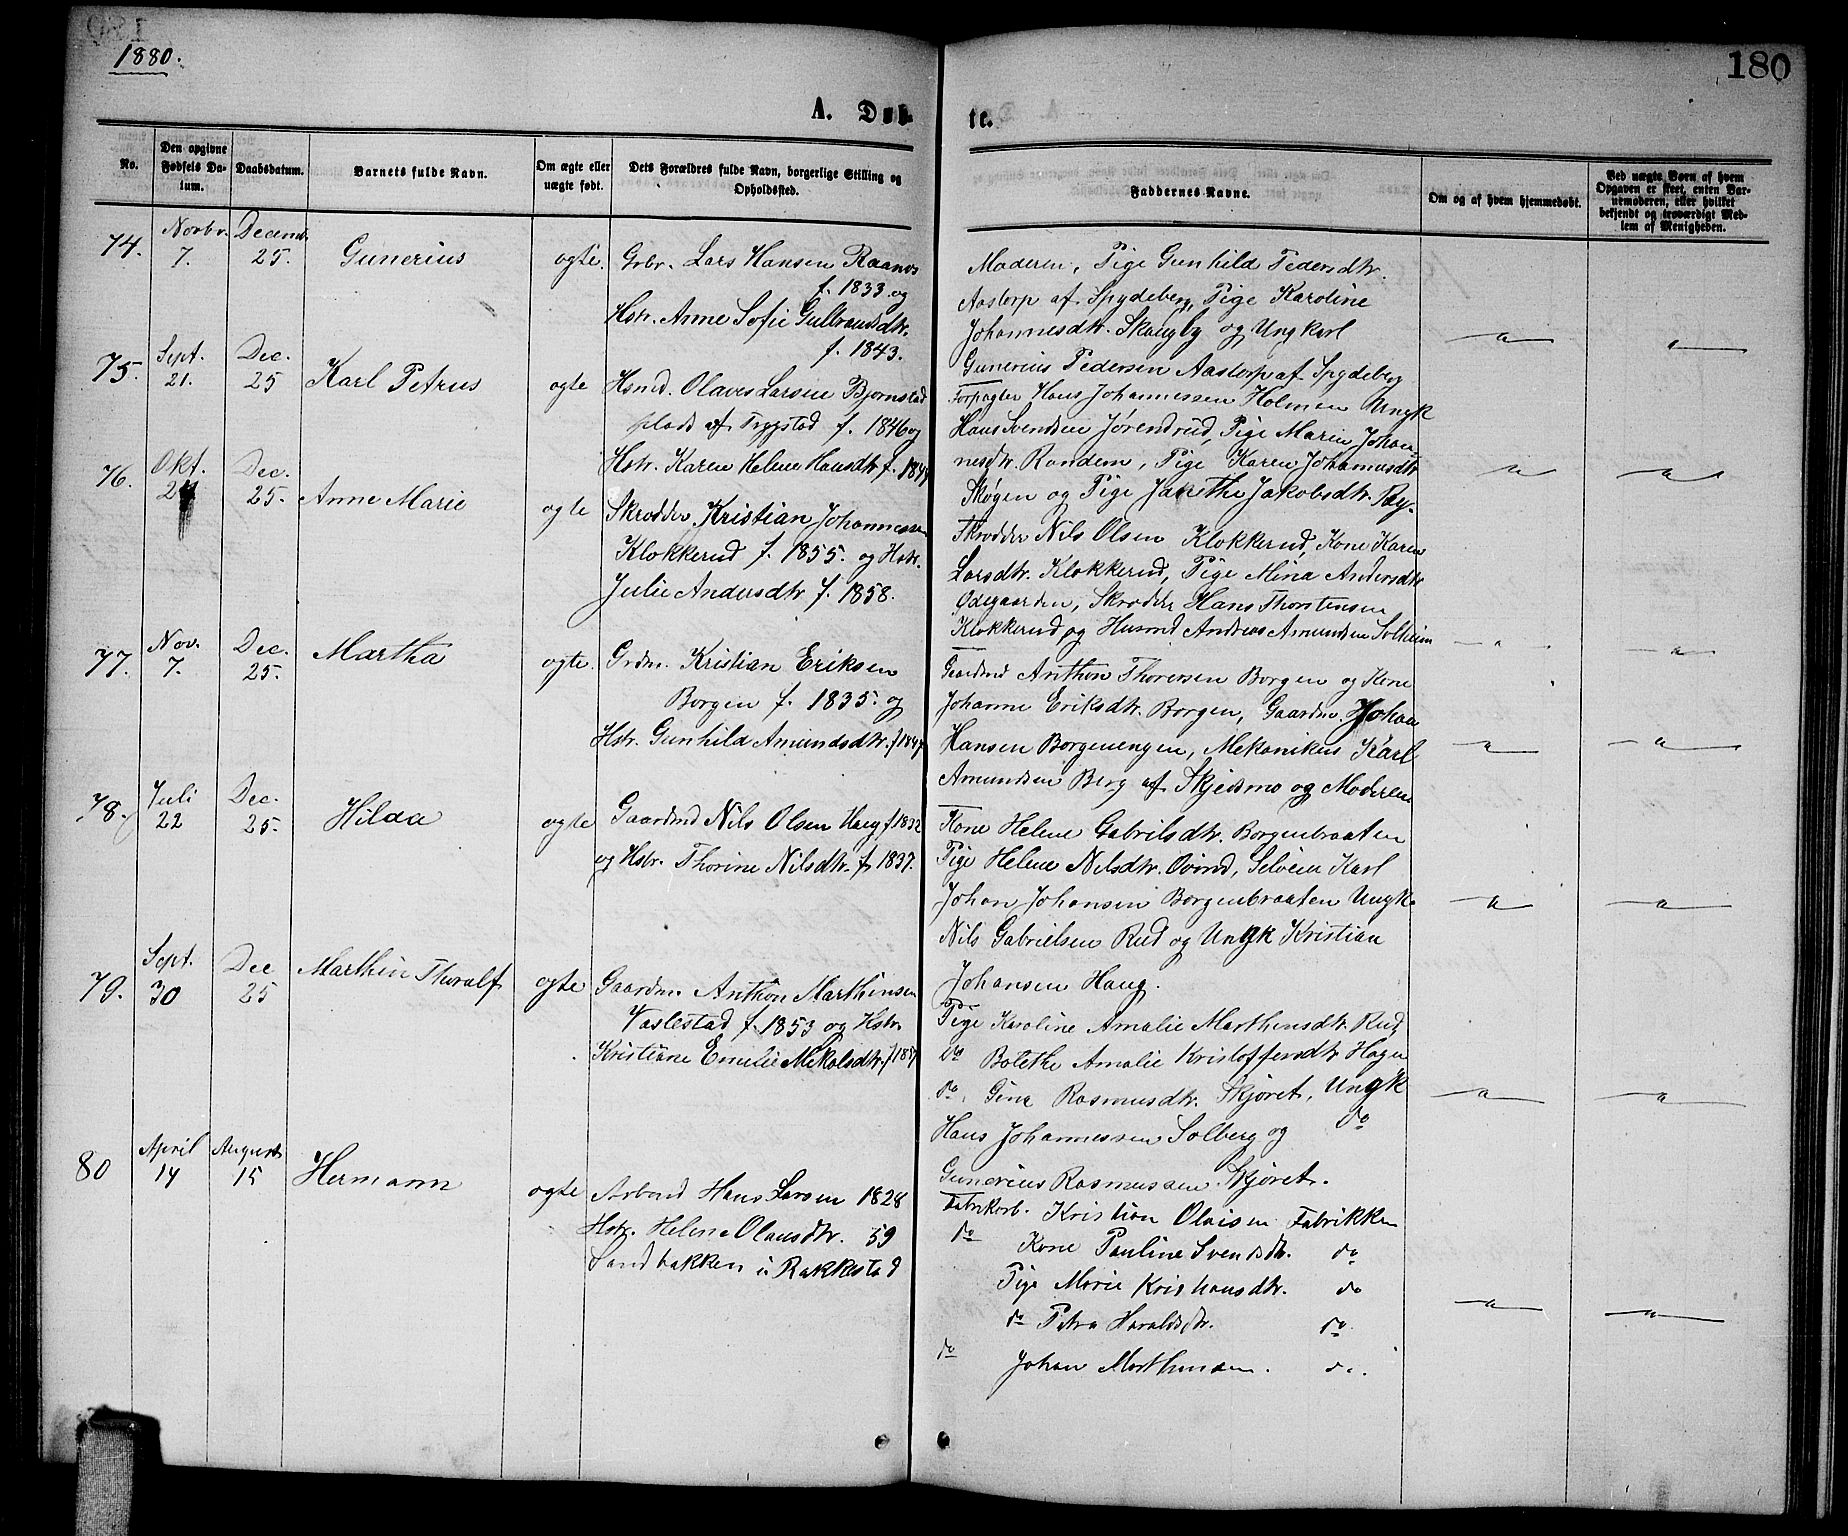 1880.
180
A. Døb-
te.
No.
Den opgivne Fødsels Da-tum.
Daabsdatum.
Barnets fulde Navn.
Om ægte eller uægte født.
Dets Forældres fulde Navn, borgerlige Stilling og Opholdsted.
Faddernes Navne.
Om og af hvem hjemmedøbt.
Ved uægte Børn af hvem Opgaven er skeet, enten Barnemoderen, eller hvilket bekjendt og troværdigt Medlem af Menigheden.
74. Novbr. 7. Decemb. 25. Gunerius ogte. Grbr. Lars Hansen Raanos
f. 1833 og
Hstr. Anne Sofie Gulbrandsdtr.
f. 1843.
Moderen, Pige Gunhild Pedersdtr.
Aastorp af Spydeberg, Pige Karoline
Johannesdtr. Skaugby og Ungkarl
Gunerius Pedersen Aastorp af Spydeberg
75. Sept. 21. Dec. 25 Karl Petrus ogte Hsmd. Olaves Larsen Bjørnstad
plads af Trygstad f. 1846 og
Hstr. Karen Helene Hansdtr f.
Forpagter Hans Johannessen Holmen Ungk
Hans Svendsen Jørendrud, Pige Maren Johan
nesdtr. Randem, Pige Karen Johannesdtr
Skøgen og Pige Janethe Jakobsdtr. Ry-
76. Okt. Dec. 25. Anne Marie ogte Skrædder Kristian Johannessen
Klokkerud f. 1855. og Hstr.
Julie Andersdtr f. 1858.
Skrædder Nils Olsen Klokkerud, Kone Karen
Larsdtr. Klokkerud, Pige Mina Andersdtr
Ødegaarden, Skrædder Hans Thorstensen
Klokkerud og Husmd Andreas Amundsen Solheim
77. Nov. 7. Dec. 25. Martha ogte. Grdm. Kristian Eriksen
Borgen f. 1835. og
Hstr. Gunhild Amundsdtr. f
Gaardmd Anthon Thoresen Borgen og Kone
Johanne Eriksdtr. Borgen, Gaardm. Johan
Hansen Borgenengen, Mekanikus Karl
Amundsen Berg af Skjedsmo og Moderen
78. Juli 22 Dec. 25. Hilda ogte Gaardmd Nils Olsen Haug f 1832
og Hstr. Thorine Nilsdtr. f. 1837.
Kone Helene Gabrilsdtr. Borgenbraaten
Pige Helene Nilsdtr. Karl
Johan Johansen Borgenbraaten Ungk.
Nils Gabrielsen Rud og Ungk Kristian
Johansen Haug.
79. Sept. 30 Dec 25 Marthin Thoralf ogte Gaardm. Anthon Marthinsen
Vaslestad f. 1853 og Hstr.
Kristiane Emelie Mikalsdtr. f
Pige Karoline Amalie Marthinsdtr. Rud,
do Bolethe Amalie Kristoffersdtr Hagen
do. Gina Rasmusdtr. Skjøret, Ungk
Hans Johannessen Solberg og do
Gunerius Rasmussen Skjøret.
80 April 14 August 15 Hermann ogte Arbmd Hans Larsen 1828
Hstr. Helene Olausdtr. 59
Sandbakken i Rakkestad
Fabrikarb. Kristian Olaisen Fabrikken
do Kone Pauline Svendsdtr. do
Pige Marie Kristiansdtr. do
do Petra Haraldsdtr. do
do Johan Marthinsen. do.